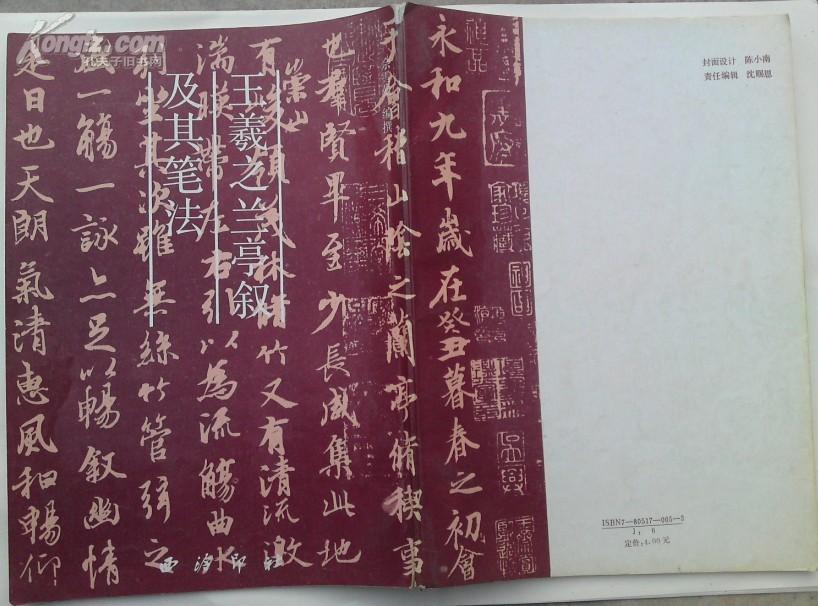 Kongfz.com
孔夫子旧书网
王羲之兰亭叙
及其笔法
编撰
西泠印社
永和九年歲在癸丑暮春之初會
于會稽山陰之蘭亭脩稧事
也羣賢畢至少長咸集此地
崇山
有峻領茂林脩竹又有清流激
湍暎帶左右引以為流觴曲水
列坐其次雖無絲竹管弦之
盛一觴一詠亦足以暢敘幽情
是日也天朗氣清惠風和暢仰
封面设计 陈小南
责任编辑 沈赐恩
ISBN7—80517—005—3
J: 6
定价:4.00元